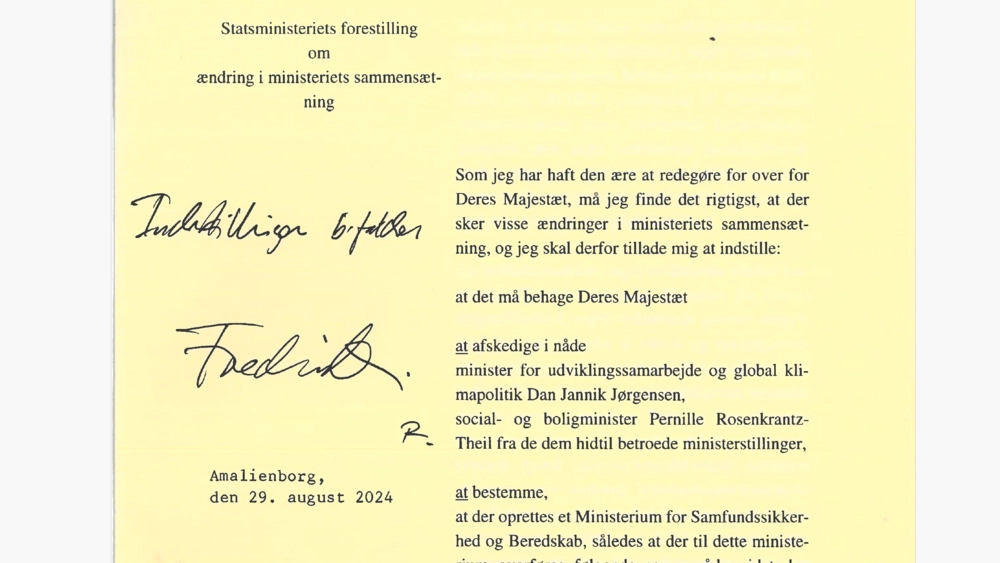 Statsministeriets forestilling
om
ændring i ministeriets sammensæt-
ning
Indstillingen bifaldes
Frederik
R.
Amalienborg,
den 29. august 2024
Som jeg har haft den ære at redegøre for over for
Deres Majestæt, må jeg finde det rigtigst, at der
sker visse ændringer i ministeriets sammensæt-
ning, og jeg skal derfor tillade mig at indstille:
at det må behage Deres Majestæt
at afskedige i nåde
minister for udviklingssamarbejde og global kli-
mapolitik Dan Jannik Jørgensen,
social- og boligminister Pernille Rosenkrantz-
Theil fra de dem hidtil betroede ministerstillinger,
at bestemme,
at der oprettes et Ministerium for Samfundssikker-
hed og Beredskab, således at der til dette ministe-